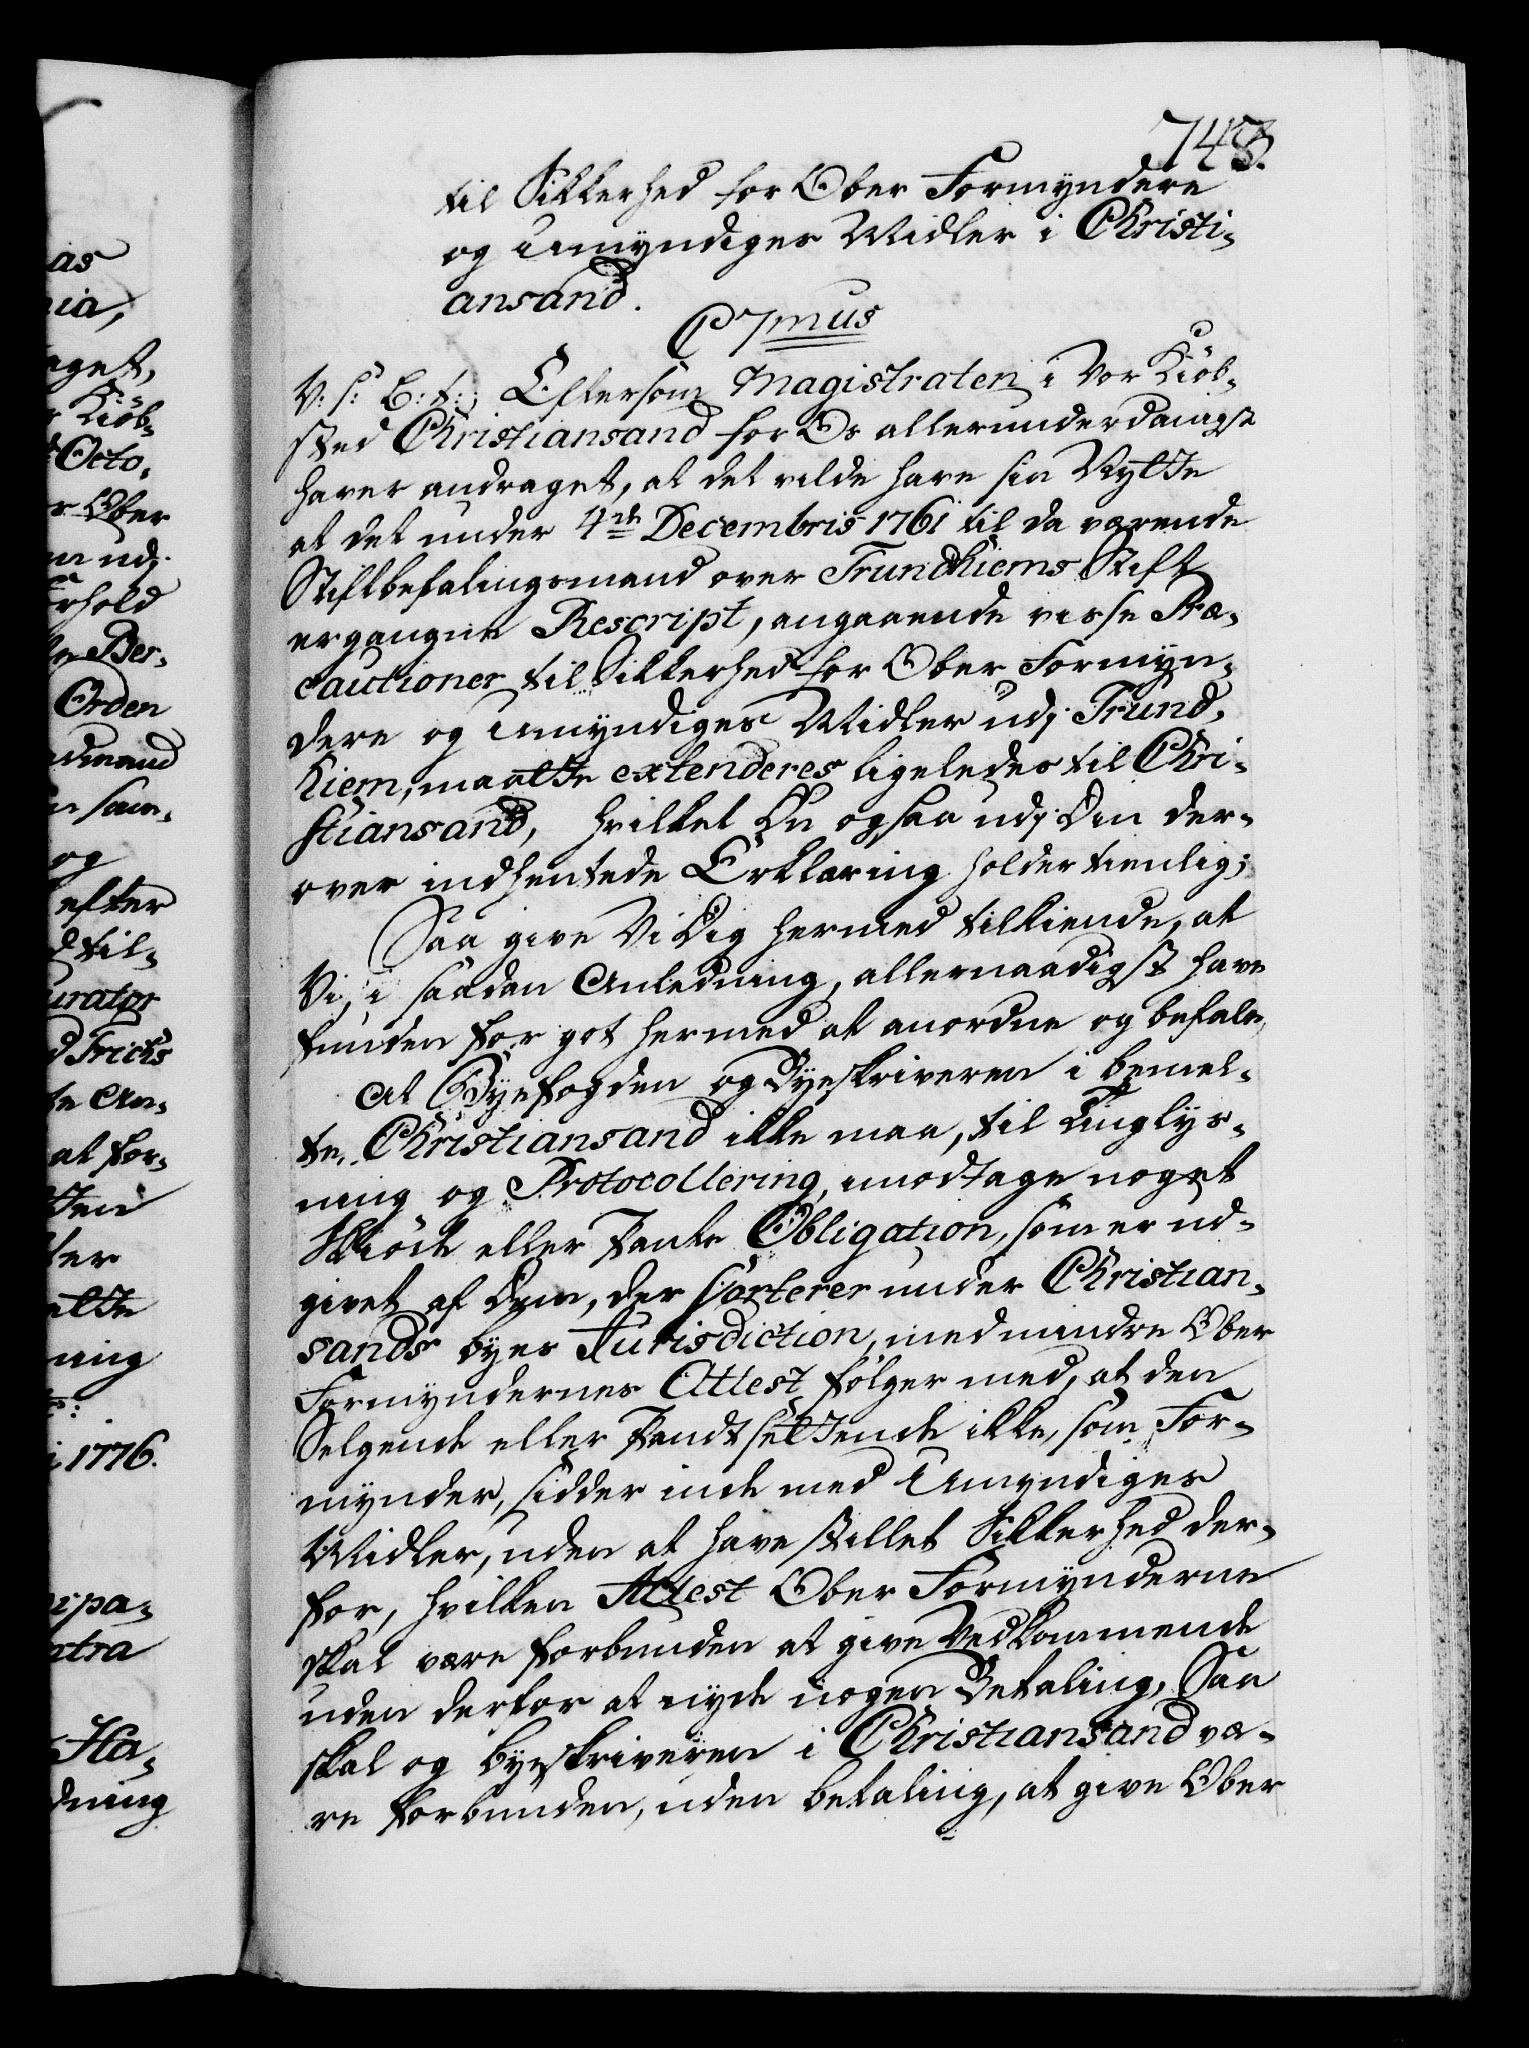 748.
til Sikkerhed for Ober Formyndere
og Umyndiges Midler i Christi-
ansand.
C 7mus
V: S: B: t:, Eftersom Magistraten i Vor Kiöb-
sted Christiansand for Os allerunderdanigst
haver andraget, at det vilde have sin Nytte
at det under 4de Decembris 1761 til da værende
Stiftbefalingsmand over Trundhiems Stift
ergangne Rescript, angaaende visse Præ-
cautioner til Sikkerhed for Ober Formyn-
dere og Umyndiges Midler udj Trund-
hiem, maatte extenderes ligeledes til Chri-
stiansand, hvilket Du ogsaa udj Din der-
over indhentede Erklæring holder tienlig;
Saa give Vi Dig hermed tilkiende, at
Vi, i saadan Anledning, allernaadigst have
funden for got hermed at anordne og befale,
At Byefogden og Byeskriveren i bemel-
te Christiansand ikke maa, til Tinglys-
ning og Protocollering, imodtage noget
Skiöde eller Pante Obligation, som er ud-
givet af Dem, der sorterer under Christian-
sands byes Jurisdiction, med mindre Ober
Formyndernes Attest fölger med, at den
Selgende eller Pandtsettende ikke, som For-
mynder, sidder inde med Umyndiges
Midler, uden at have stillet Sikkerhed der-
for, hvilken Attest Ober Formynderne
skal være forbunden at give Vedkommende
uden derfor at nyde nogen Betaling, Saa
skal og byeskriveren i Christiansand væ-
re forbunden, uden betaling, at give Ober
as
nia,
aget,
r Kiöb-
Octo,
r Ober
n udj
rhold
te Ber-
Orden
dmand
n sam-
og
efter
d til-
urator
d Frichs
te An-
at for-
ten
ter
atte
ning
i 1776.
ripa-
ntra
Ha-
dning